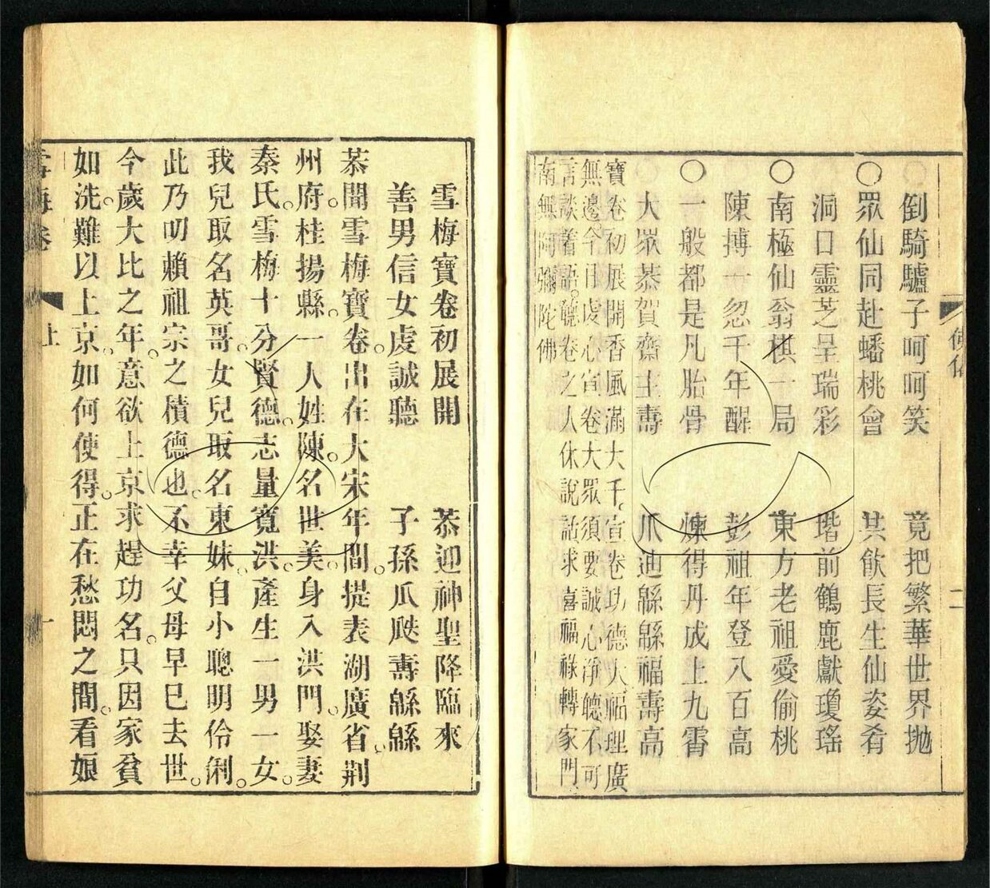 倒騎驢子呵呵笑　竟把繁華世界拋
○眾仙同赴蟠桃會　共飲長生仙姿肴
洞口靈芝呈瑞彩　堦前鶴鹿獻瓊瑤
○南極仙翁棋一局　東方老祖愛偷桃
陳摶一忽千年醒　彭祖年登八百高
○一般都是凡胎骨　煉得丹成上九霄
大眾恭賀齋主壽　瓜迪綿綿福壽高
寶卷初展開香風滿大千宣卷功德大福理廣
無邊今日虔心宣卷大眾須要誠心淨聽不可
言談著語聽卷之人休說話求喜福祿轉家門
南無阿彌陀佛
二
雪梅寶卷初展開　恭迎神聖降臨來
善男信女虔誠聽　子孫瓜瓞壽綿綿
恭聞雪梅寶卷。出在大宋年間。提表湖廣省荆
州府。桂揚縣。一人姓陳。名世美。身入洪門。娶妻
秦氏。雪梅十分賢德。志量寬洪。產生一男一女。
我兒取名英哥。女兒取名東妹。自小聰明伶俐。
此乃叨賴祖宗之積德也。不幸父母早已去世。
今歲大比之年。意欲上京求趕功名。只因家貧
如洗。難以上京。如何使得。正在愁悶之間。看娘
雪梅卷　上　一